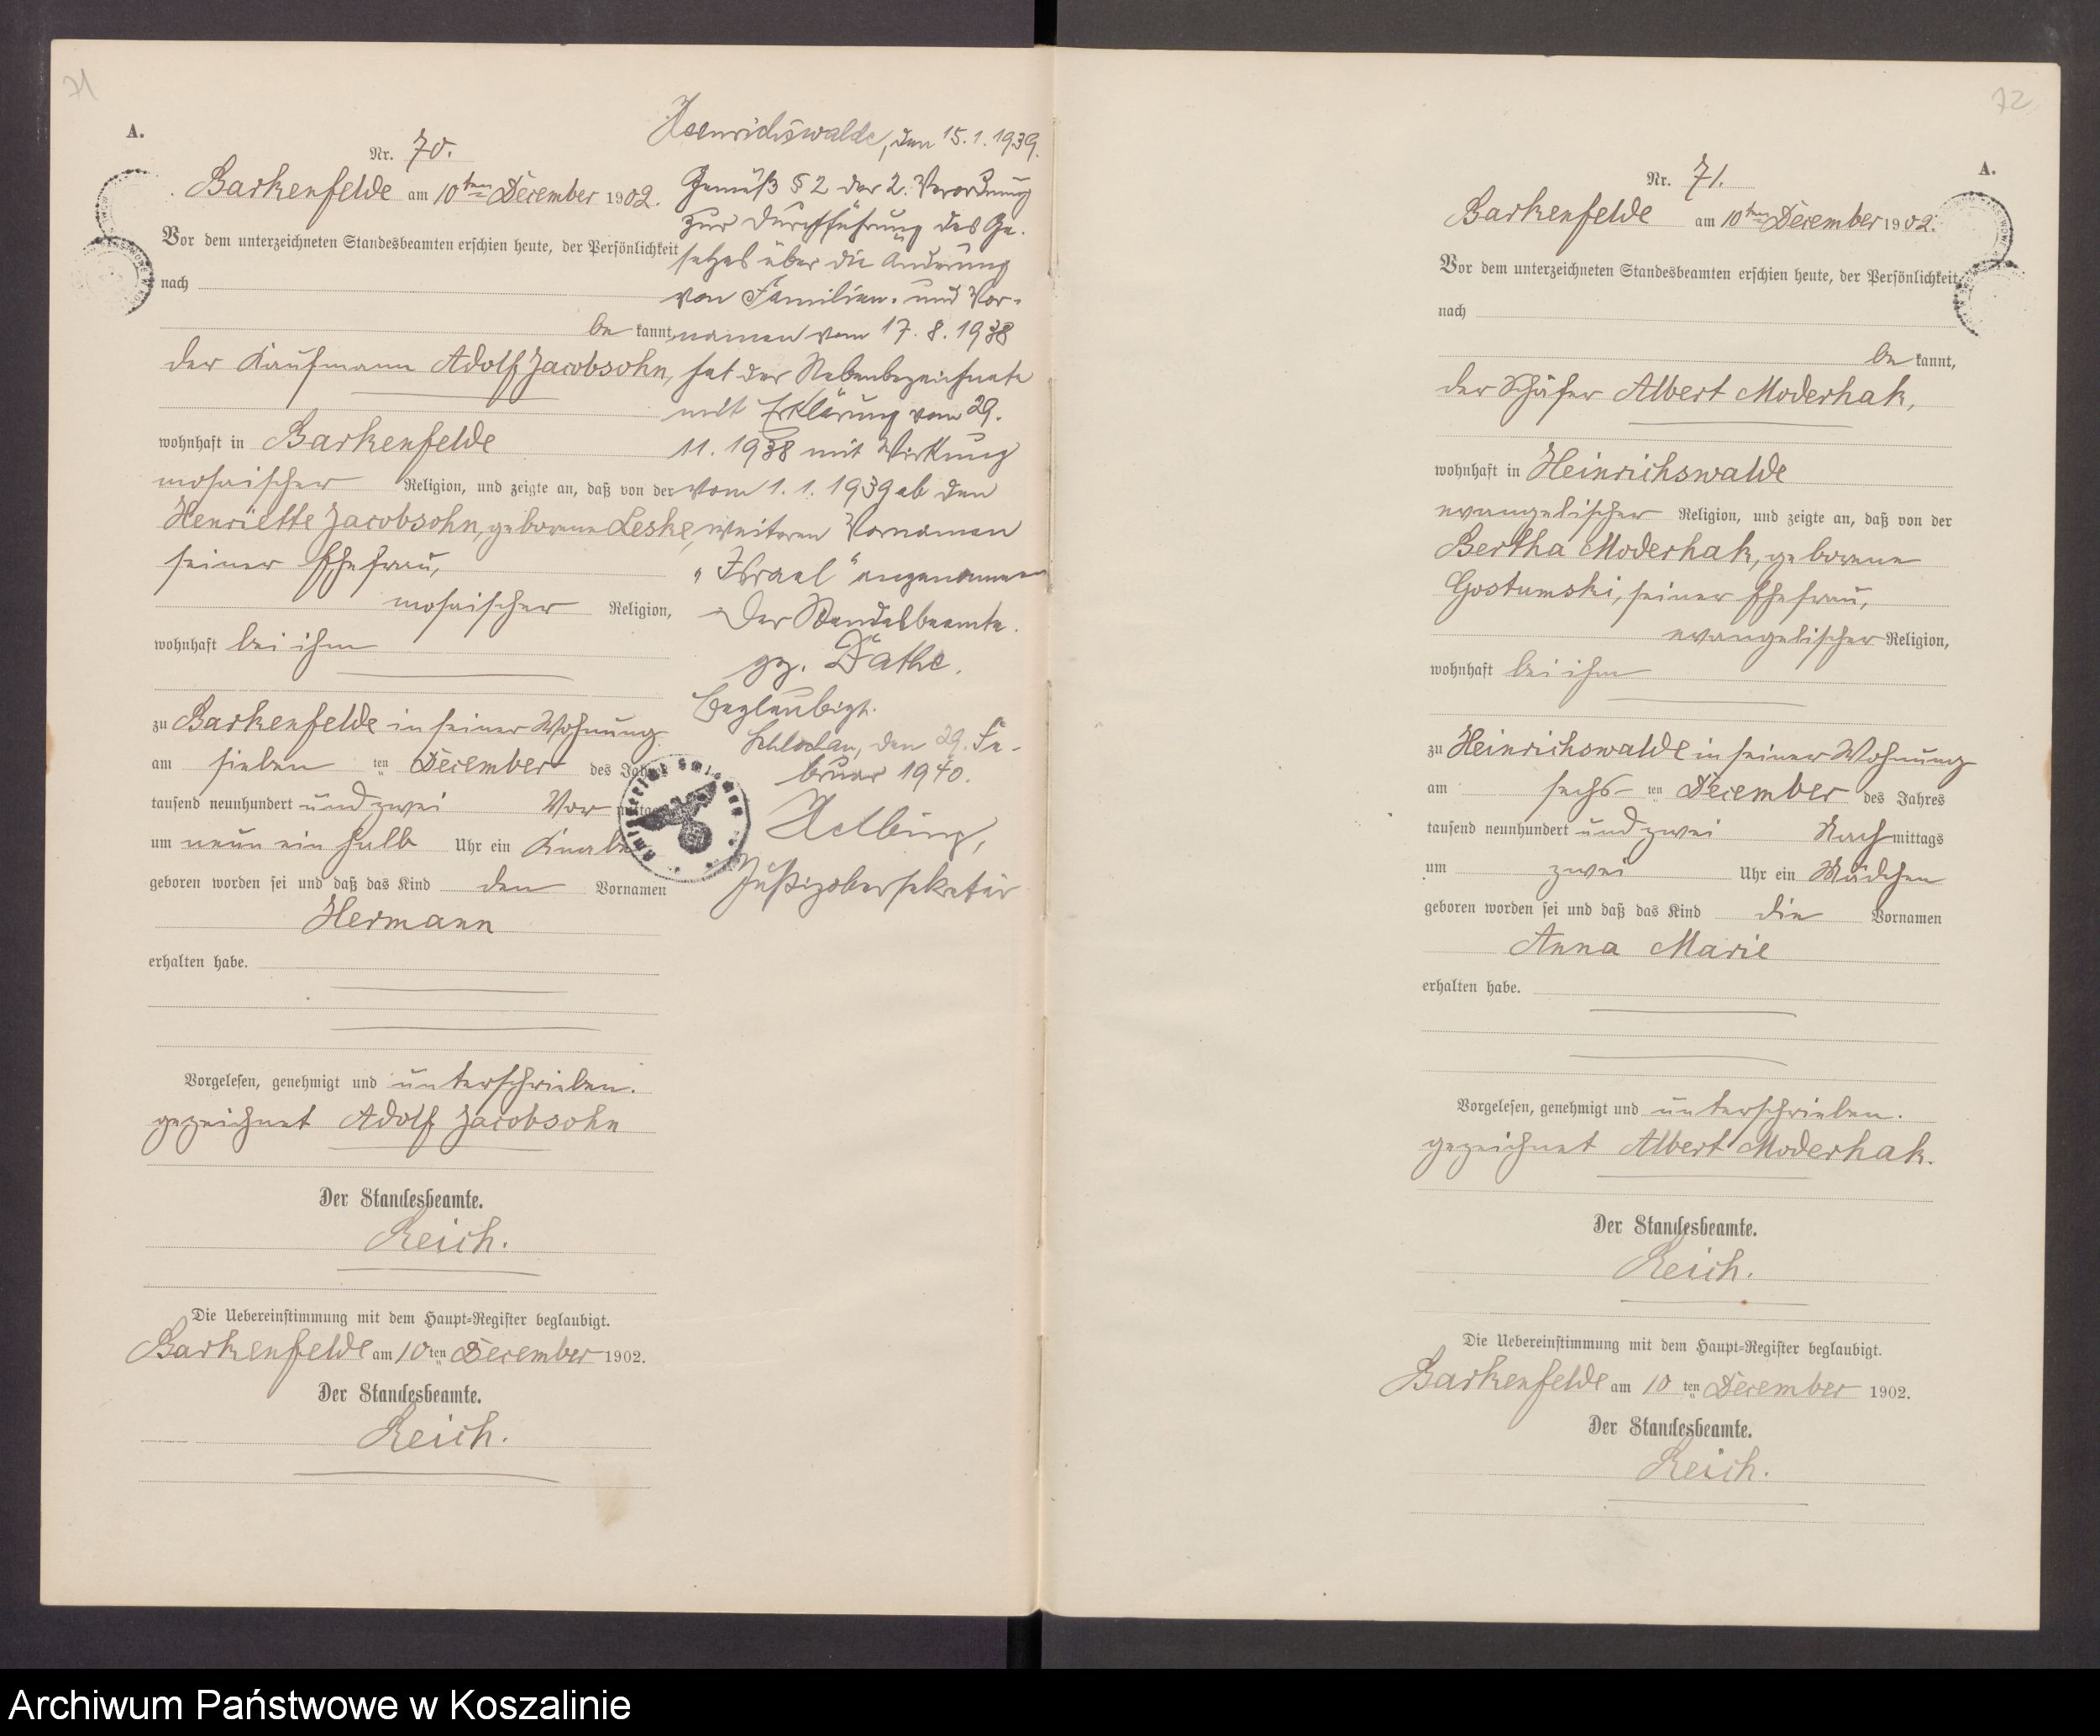 71
A.
Nr. 70.
Barkenfelde am 10ten December 1902.
Vor dem unterzeichneten Standesbeamten erschien heute, der Persönlichkeit
nach
be kannt,
der Kaufmann Adolf Jacobsohn,
wohnhaft in Barkenfelde
mosaischer Religion, und zeigte an, daß von der
Henriette Jacobsohn, geborene Leske,
seiner Ehefrau,
mosaischer Religion,
wohnhaft bei ihm
zu Barkenfelde in seiner Wohnung
am sieben ten December des Jahres
tausend neunhundert und zwei Vor mittags
um neun ein halb Uhr ein Knabe
geboren worden sei und daß das Kind den Vornamen
Hermann
erhalten habe.
Vorgelesen, genehmigt und unterschrieben.
gezeichnet Adolf Jacobsohn
Der Standesbeamte.
Reich.
Die Uebereinstimmung mit dem Haupt-Register beglaubigt.
Barkenfelde am 10 ten December 1902.
Der Standesbeamte.
Reich.
Heinrichswalde, den 15.1.1939.
Gemäß § 2 der 2. Verordnung
zur Durchführung des Ge-
setzes über die Änderung
von Familien- und Vor-
namen vom 17.8.1938
hat der Nebenbezeichnete
mit Erklärung vom 29.
11.1938 mit Wirkung
vom 1.1.1939 ab den
weiteren Vornamen
"Israel" angenommen
Der Standesbeamte.
gz. Däthe.
Beglaubigt.
Schlochau, den 29. Fe-
bruar 1940.
Helbing,
Justizobersekretär
72
A.
Nr. 71.
Barkenfelde am 10ten December 1902.
Vor dem unterzeichneten Standesbeamten erschien heute, der Persönlichkeit
nach
be kannt,
der Schäfer Albert Moderhak,
wohnhaft in Heinrichswalde
evangelischer Religion, und zeigte an, daß von der
Bertha Moderhak, geborene
Gostumski, seiner Ehefrau,
evangelischer Religion,
wohnhaft bei ihm
zu Heinrichswalde in seiner Wohnung
am sechs ten December des Jahres
tausend neunhundert und zwei Nach mittags
um zwei Uhr ein Mädchen
geboren worden sei und daß das Kind die Vornamen
Anna Marie
erhalten habe.
Vorgelesen, genehmigt und unterschrieben.
gezeichnet Albert Moderhak.
Der Standesbeamte.
Reich.
Die Uebereinstimmung mit dem Haupt-Register beglaubigt.
Barkenfelde am 10 ten December 1902.
Der Standesbeamte.
Reich.
Archiwum Państwowe w Koszalinie